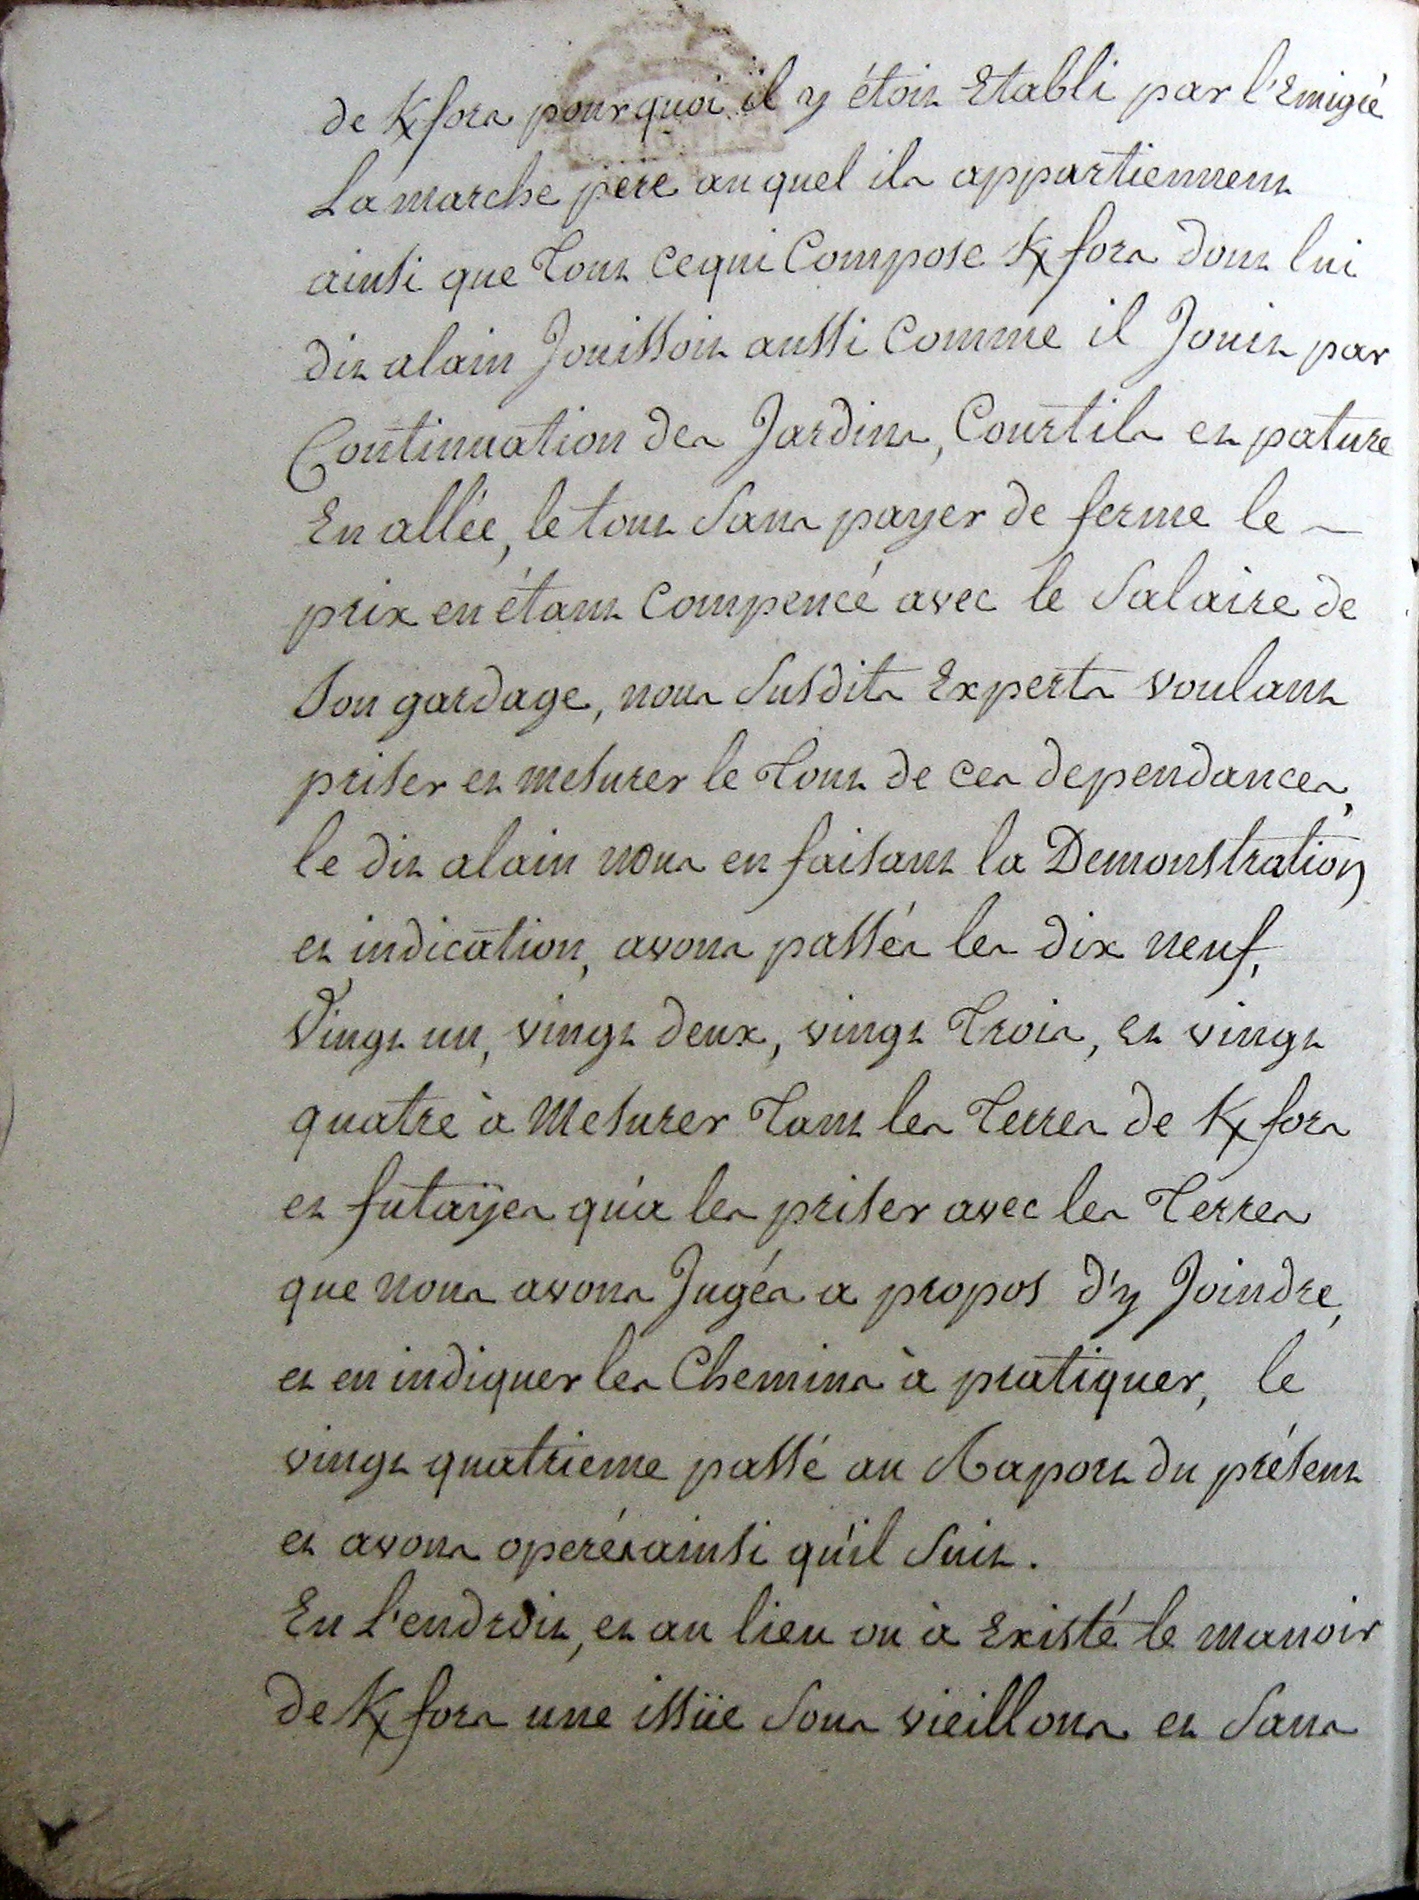 de K/fors pourquoi il y étoit Etabli par l'Emigré
La marche pere auquel ils appartiennent
ainsi que Tout ce qui Compose K/fors dont lui
dit alain Jouissoit aussi Comme il Jouit par
Continuation des Jardins, Courtils et pature
En allée, le tout sans payer de ferme le
prix en étant Compencé avec le salaire de
son gardage, nous susdits Experts voulant
priser et mesurer le Tout de ces dependances,
le dit alain nous en faisant la Demonstration
et indication, avons passés les dix neuf,
Vingt un, vingt deux, vingt Trois, et vingt
quatre à Mesurer Tant les Terres de K/fors
et futaÿes qu'a les priser avec les Terres
que nous avons Jugés a propos d'y Joindre,
et en indiquer les Chemins à pratiquer, le
vingt quatrieme passé au Raport du présent
et avons operés ainsi qu'il suit.
En L'endroit, et au lieu ou à Existé le manoir
de K/fors une issüe sous vieillons et sans